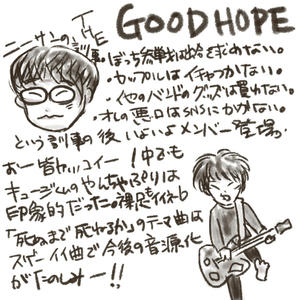 THE GOOD HOPE
ニーサンの訓事
・ぼっち参戦は恥を求めない。
・カップルはイチャつかない。
・他のバンドのグッズは買わない。
・オレの悪口はSNSにかかない。
という訓事の後いよいよメンバー登場
おー皆ヤバ コイー!中でも
キュージくんのやんちゃぶりは
印象的だったの裸足もイイネ
「死ぬまで死ねるか」のテーマ曲は
スーパーイイ曲で今後の音源化
がたのしみー!!